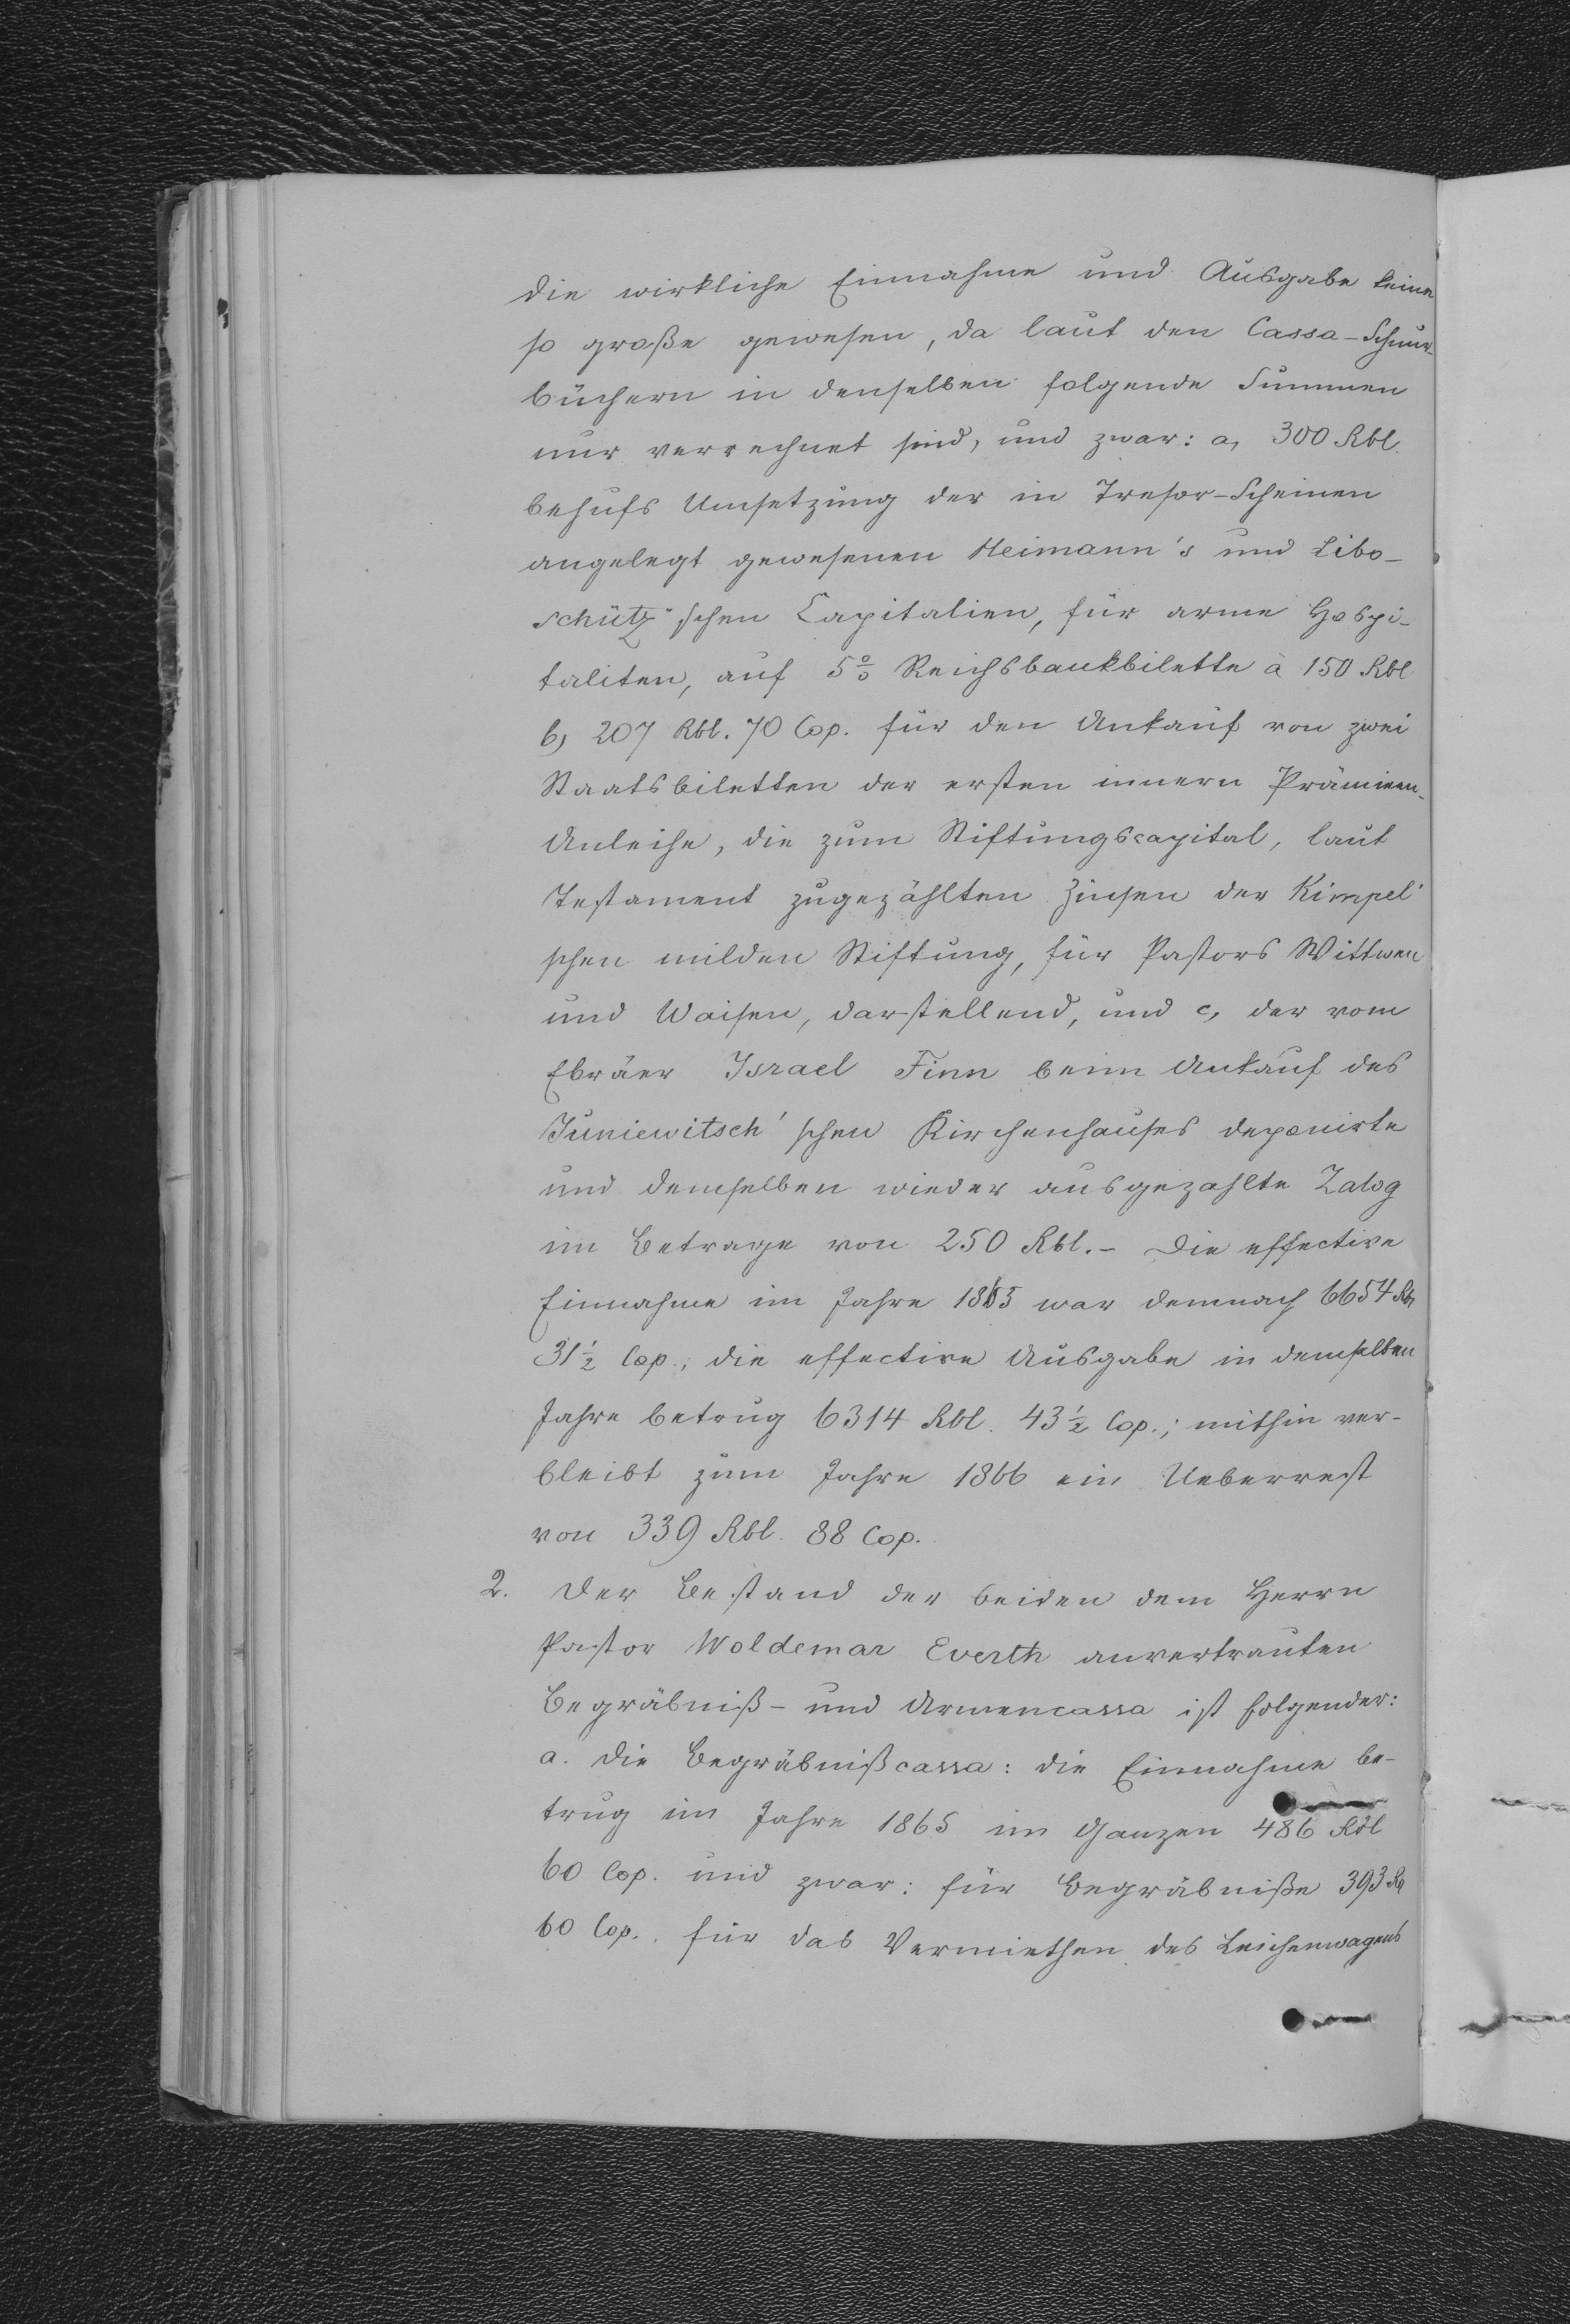 die wirkliche Einnahme und Ausgabe keine
so große gewesen, da laut den Cassa-Schnur-
büchern in denselben folgende Summen
nur verrechnet sind, und zwar: a, 300 Rbl.
behufs Umsetzung der in Tresor-Scheinen
angelegt gewesenen Heimann's und Libo-
schütz'schen Capitalien, für arme Hospi-
taliten, auf 5% Reichsbankbilette à 150 Rbl
b, 207 Rbl. 70 Cop. für den Ankauf von zwei
Staatsbiletten der ersten innern Prämien-
Anleihe, die zum Stiftungscapital, laut
Testament zugezählten Zinsen der Kimpel'
schen milden Stiftung, für Pastors Wittwen
und Waisen, darstellend, und c, der vom
Ebräer Israel Finn beim Ankauf des
Juniewitsch'schen Kirchenhauses deponirte
und demselben wieder ausgezahlte Zalog
im Betrage von 250 Rbl. – Die effective
Einnahme im Jahre 1865 war demnach 6654 Rbl
31½ Cop.; die effective Ausgabe in demselben
Jahre betrug 6314 Rbl. 43½ Cop.; mithin ver-
bleibt zum Jahre 1866 ein Ueberrest
von 339 Rbl. 88 Cop.
2. Der Bestand der beiden dem Herrn
Pastor Woldemar Everth anvertrauten
Begräbniß- und Armencassa ist folgender:
a. die Begräbnißcassa: die Einnahme be-
trug im Jahre 1865 im Ganzen 486 Rbl
60 Cop. und zwar: für Begräbniße 393 Rbl
60 Cop., für das Vermiethen des Leichenwagens